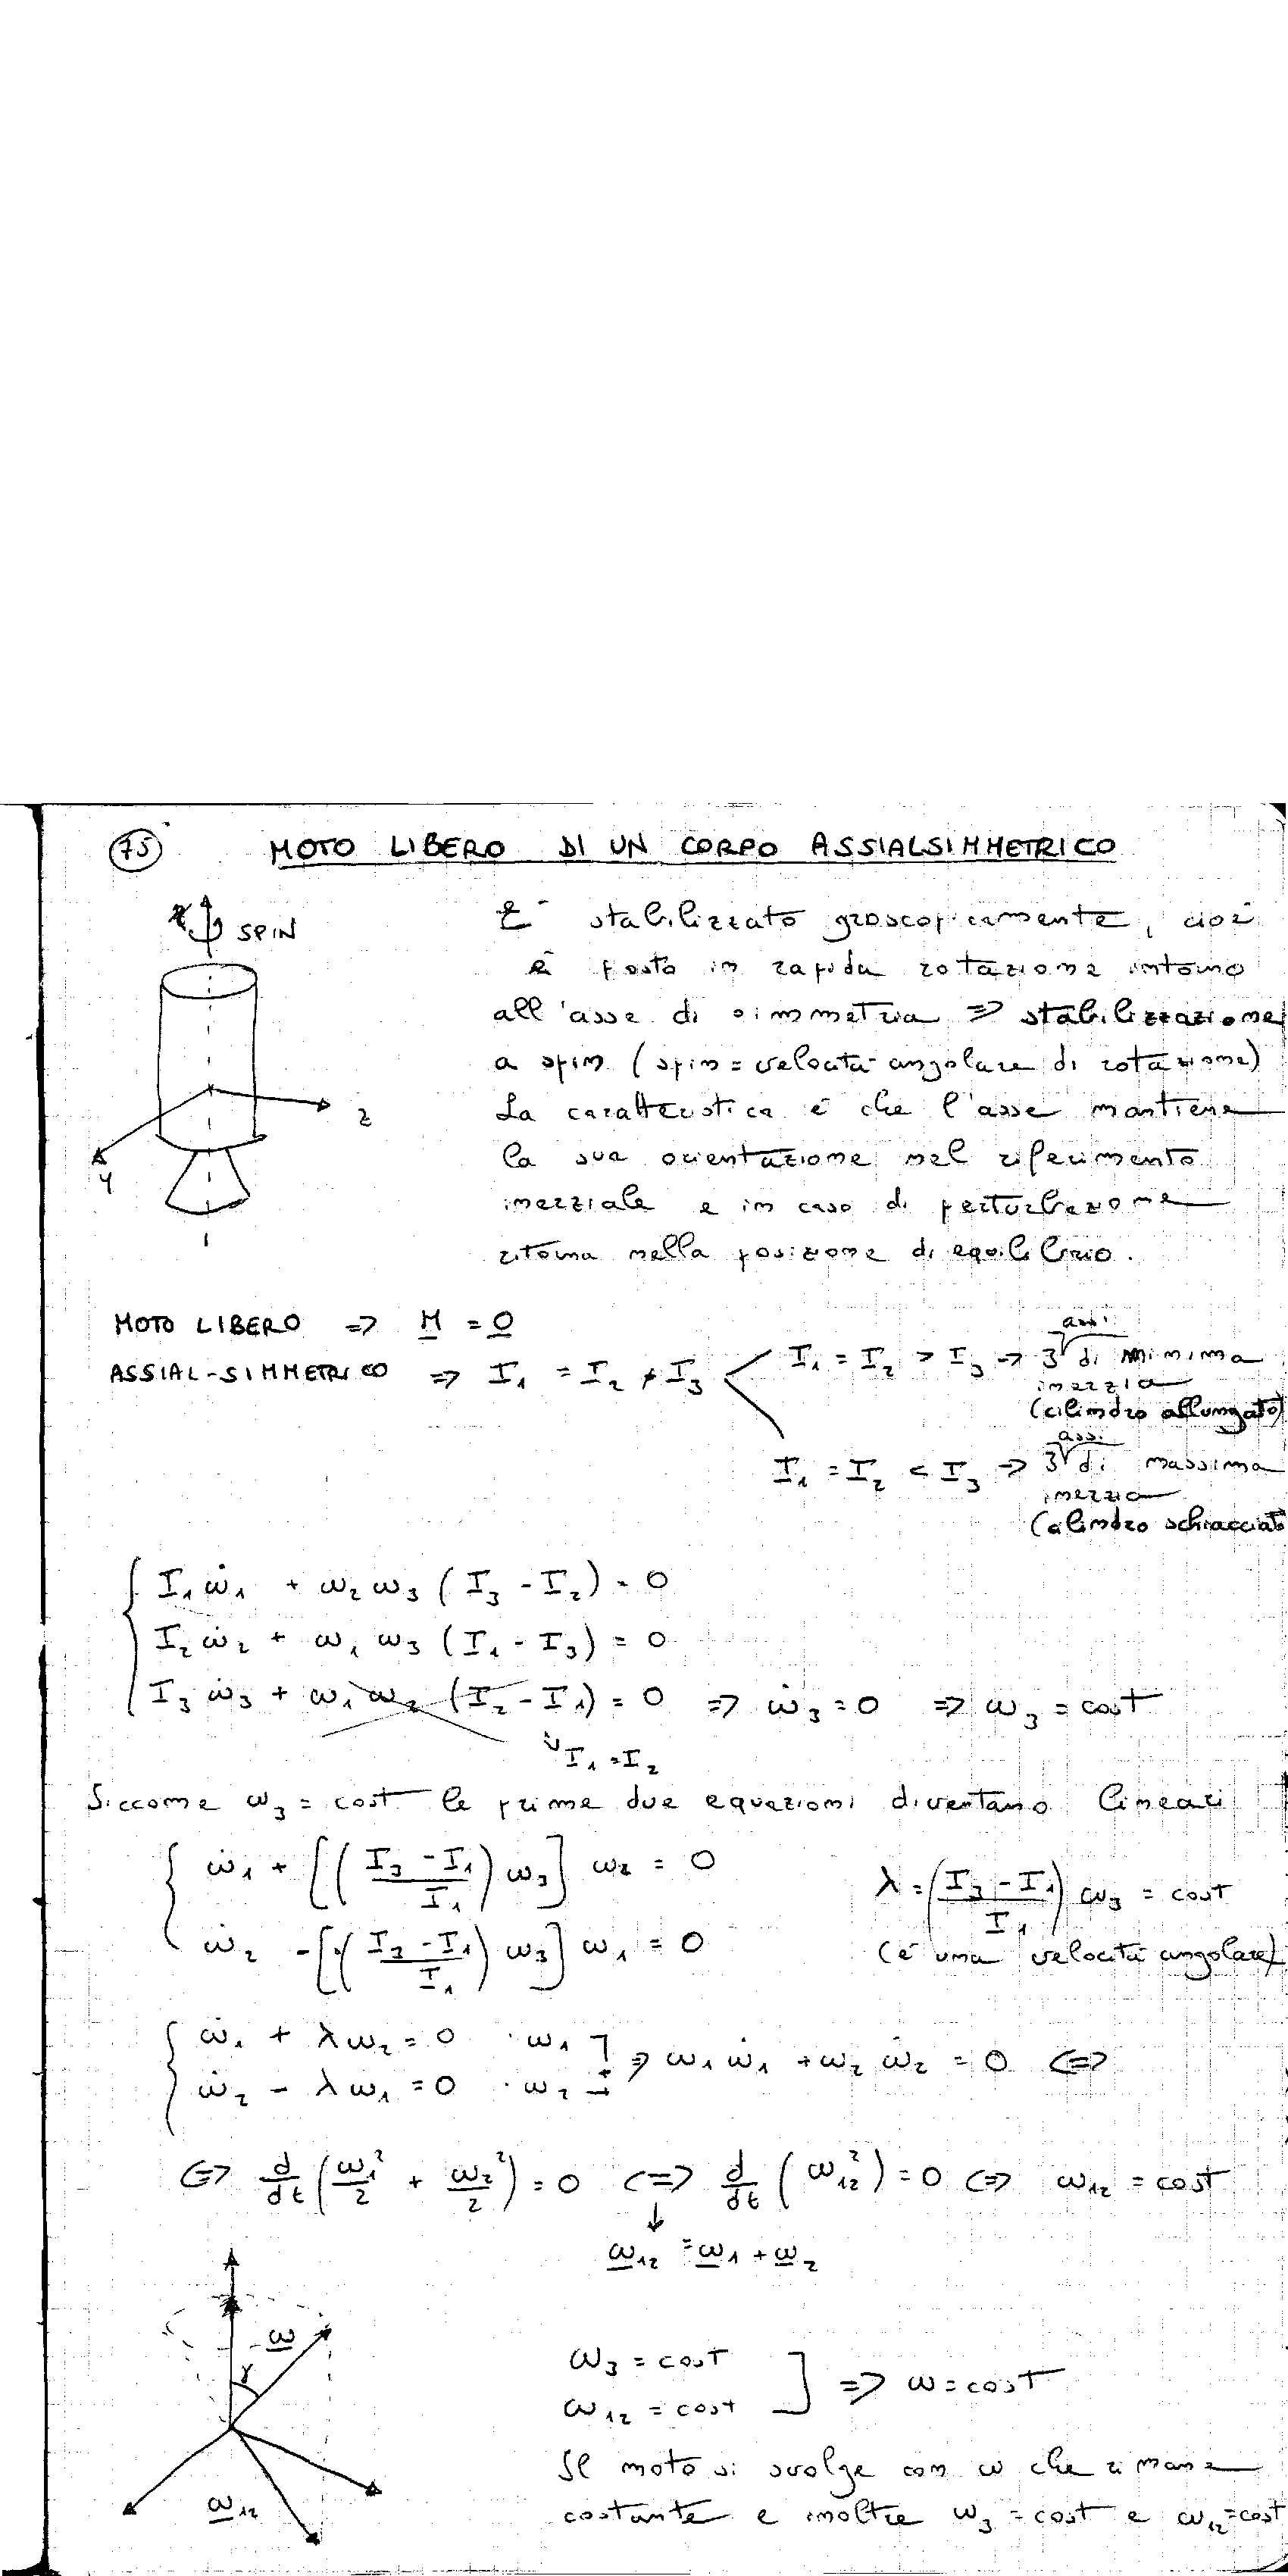 75 MOTO LIBERO DI UN CORPO ASSIALSIMMETRICO
SPIN
2
E' stabilizzato giroscopicamente, cioè
è posto in rapida rotazione intorno
all'asse di simmetria => stabilizzazione
a spin (spin = velocità angolare di rotazione)
La caratteristica è che l'asse mantiene
la sua orientazione nel riferimento
inerziale e in caso di perturbazione
ritorna nella posizione di equilibrio.
MOTO LIBERO => M = 0
ASSIAL-SIMMETRICO => I₁ = I₂ ≠ I₃
I₁ = I₂ > I₃ → 3 assi di minima
inerzia
(cilindro allungato)
I₁ = I₂ < I₃ → 3 assi di massima
inerzia
(cilindro schiacciato
I₁ω̇₁ + ω₂ω₃ (I₃ - I₂) = 0
I₂ω̇₂ + ω₁ω₃ (I₁ - I₃) = 0
I₃ω̇₃ + ω₁ω₂ (I₂ - I₁) = 0 => ω̇₃ = 0 => ω₃ = cost
I₁ = I₂
Siccome ω₃ = cost le prime due equazioni diventano lineari
ω̇₁ + [((I₃ - I₁)/I₁) ω₃] ω₂ = 0
λ = ((I₃ - I₁)/I₁) ω₃ = cost
ω̇₂ - [((I₃ - I₁)/I₁) ω₃] ω₁ = 0
(è una velocità angolare)
ω̇₁ + λω₂ = 0 · ω₁
ω̇₂ - λω₁ = 0 · ω₂ + => ω₁ω̇₁ + ω₂ω̇₂ = 0 <=>
<=> d/dt (ω₁²/2 + ω₂²/2) = 0 <=> d/dt (ω₁₂²) = 0 <=> ω₁₂ = cost
↓
ω₁₂ = ω₁ + ω₂
ω
γ
ω₁₂
ω₃ = cost
ω₁₂ = cost ] => ω = cost
Il moto si svolge con ω che rimane
costante e inoltre ω₃ = cost e ω₁₂ = cost